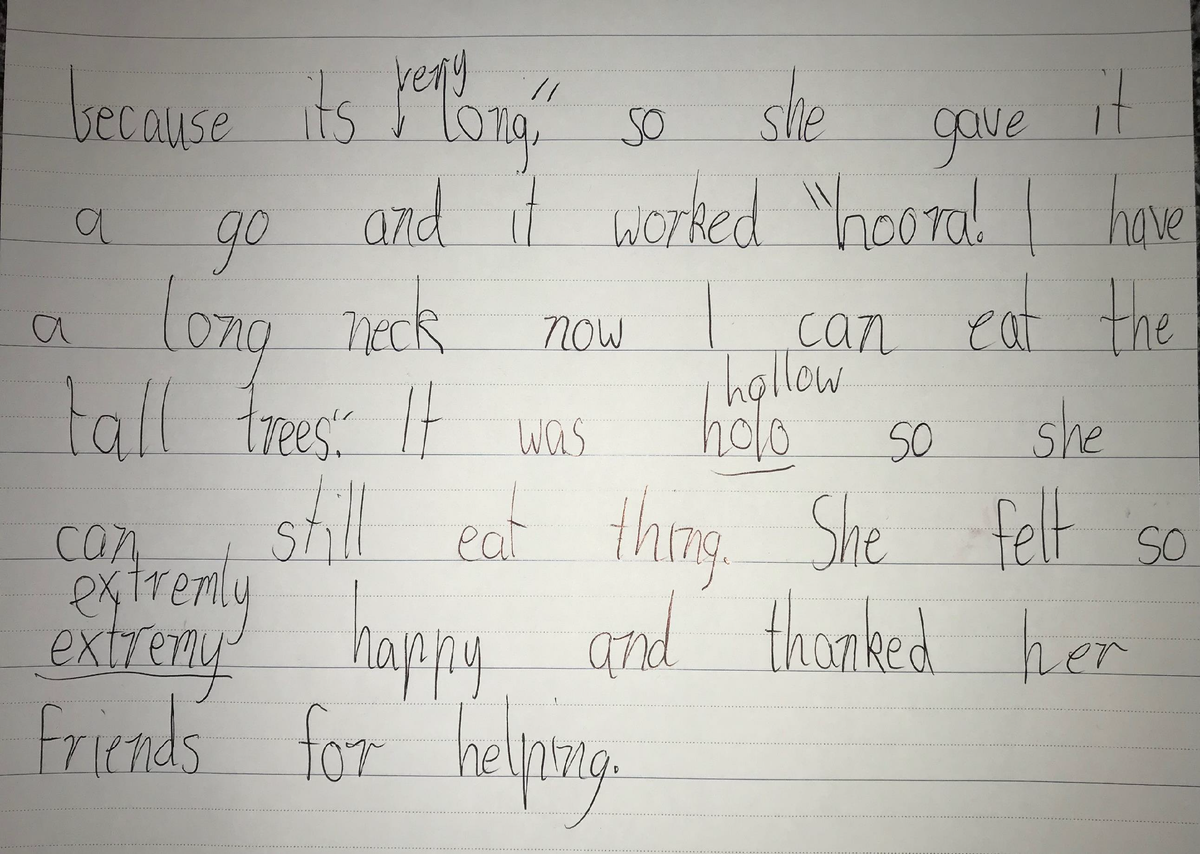 very
because its long," so she gave it
a go and it worked "hoora! I have
a long neck now I can eat the
hollow
tall trees." It was holo so she
can still eat thing. She felt so
extremly
extremy happy and thanked her
friends for helping.